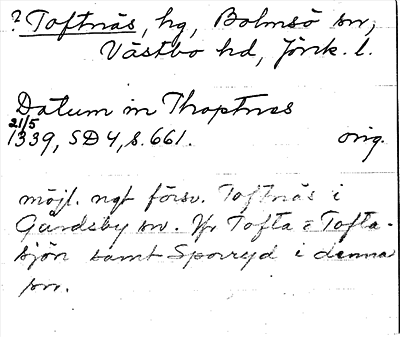 ? Toftnäs, hg, Bolmsö sn,
Västbo hd, Jönk. l.
Datum in Thoptnes
21/5
1339, SD 4, s. 661. orig.
möjl. ngt försv. Toftnäs i
Gårdsby sn. Jfr Tofta o Tofta-
sjön samt Sporryd i denna
sn.